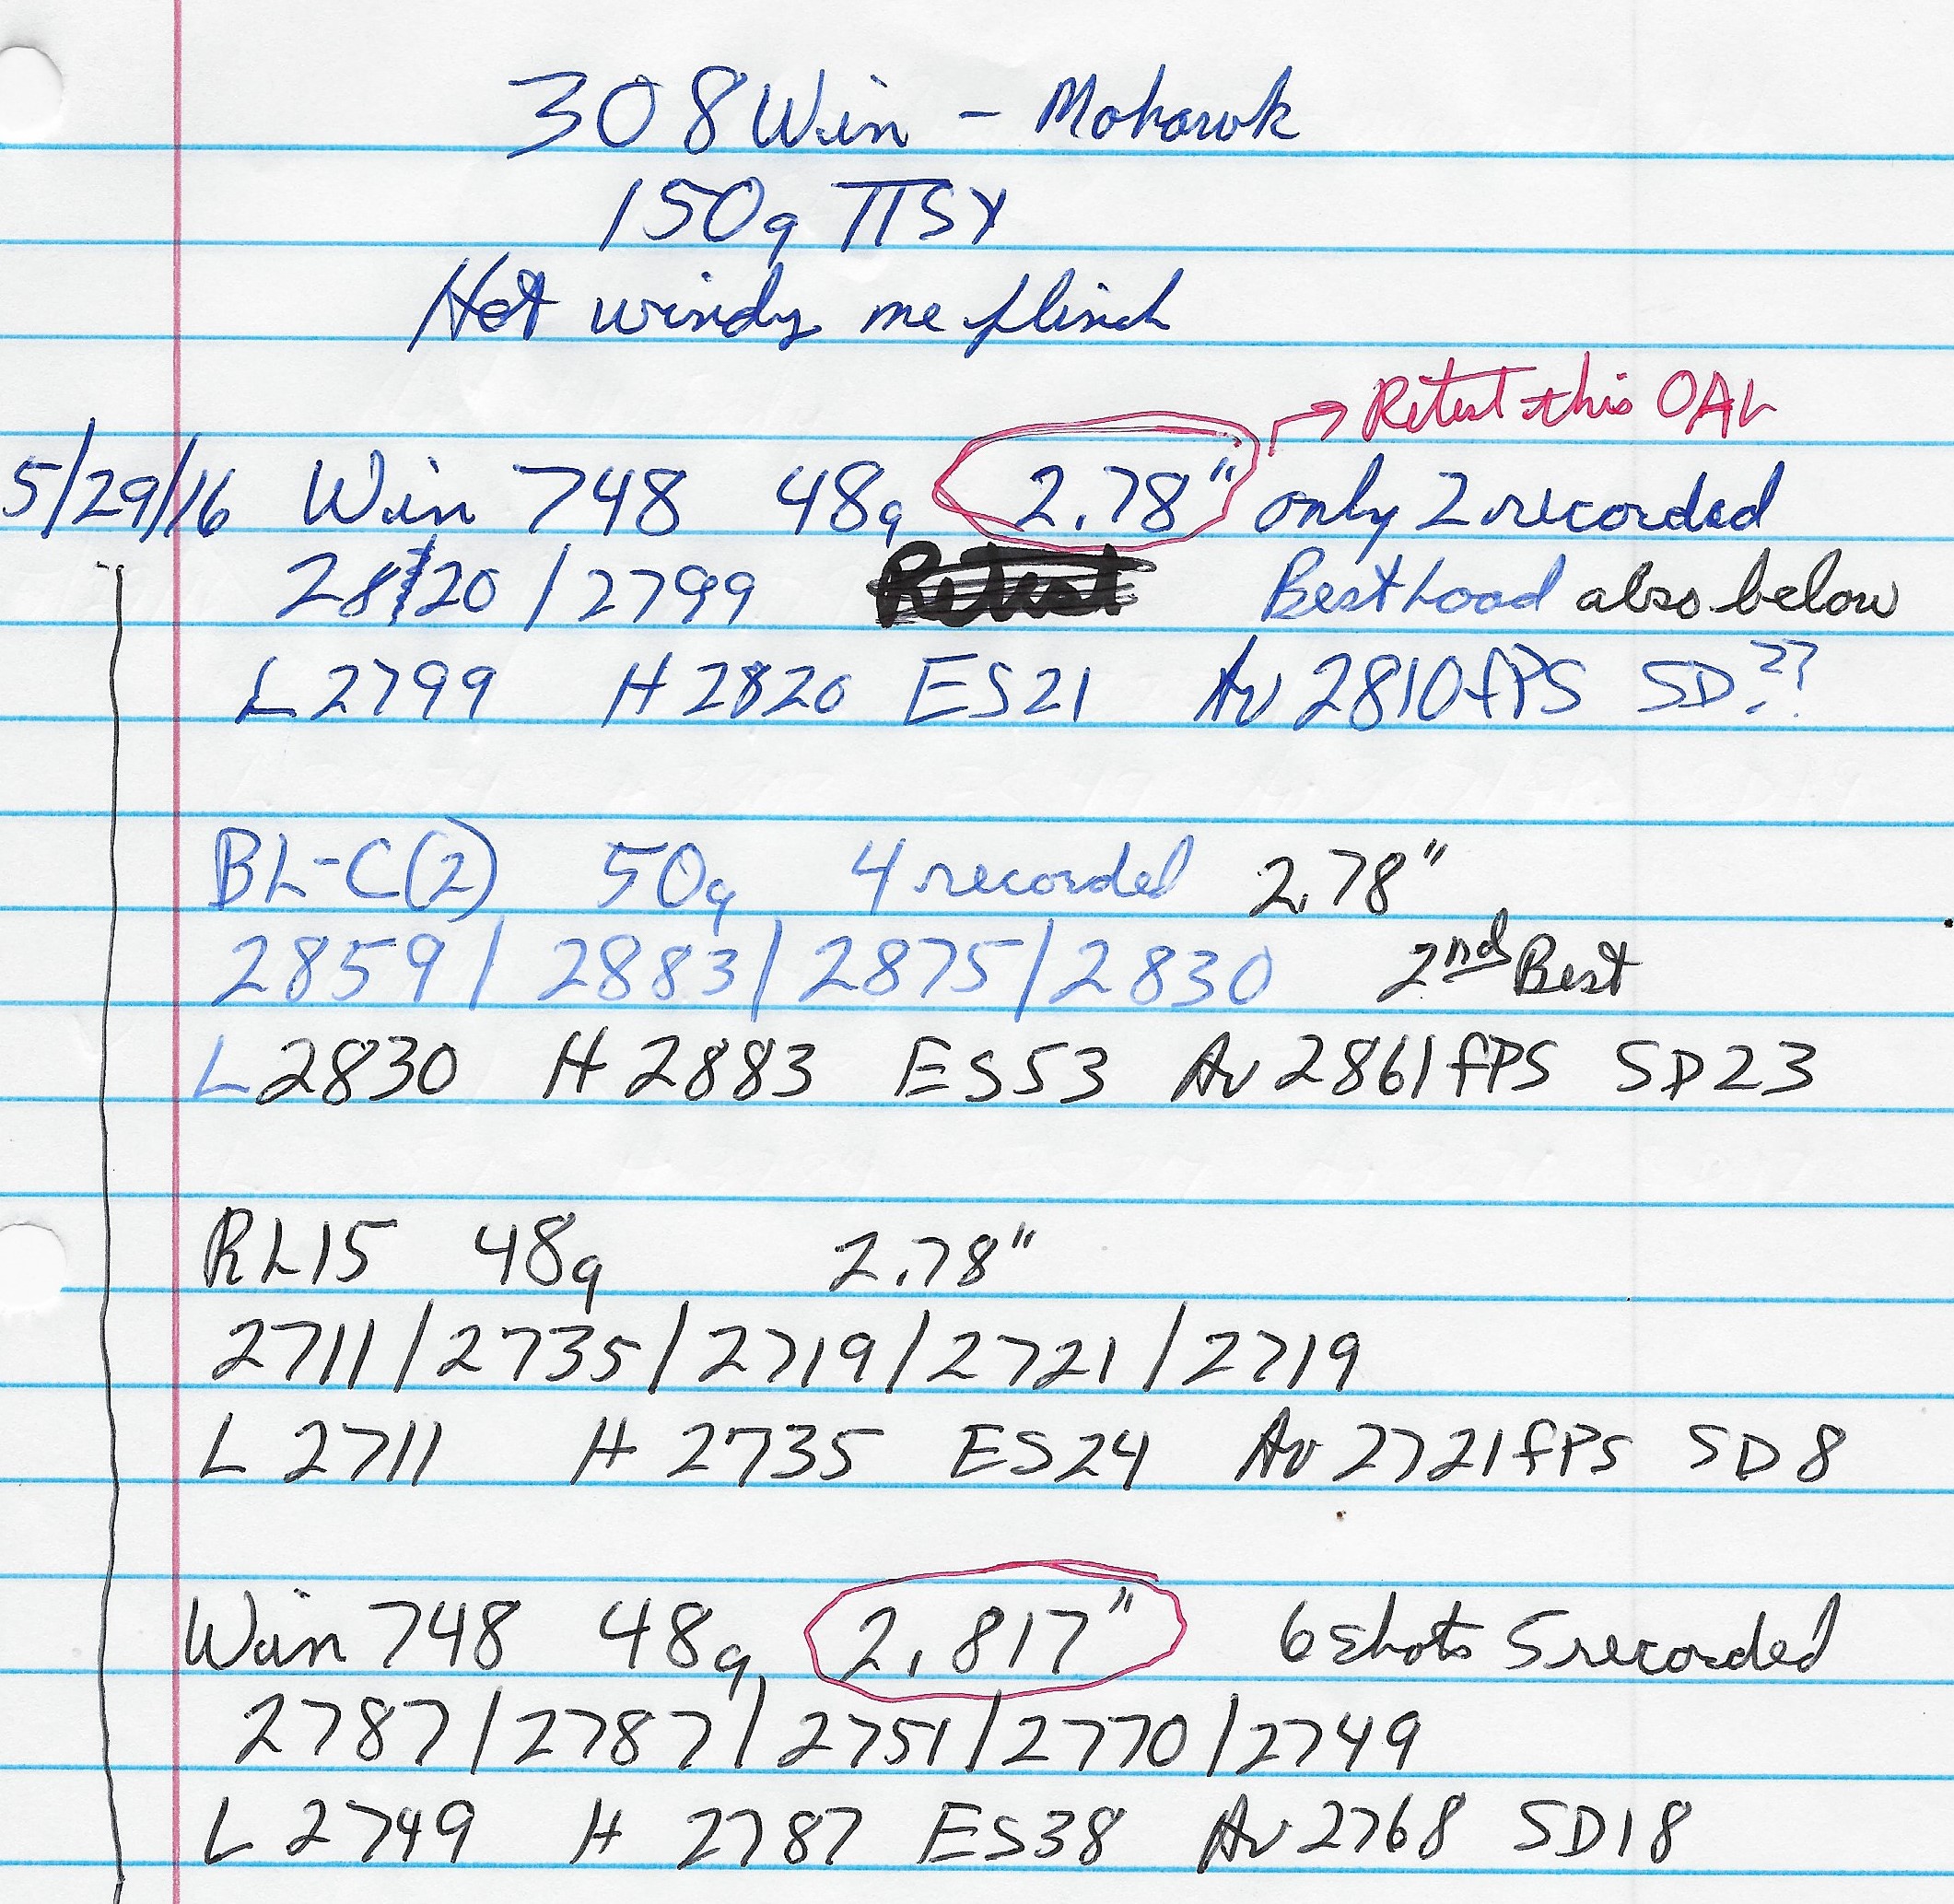 308 Win - Mohawk
150g TTSX
Hot windy me flinch
→ Retest this OAL
5/29/16 Win 748 48g 2.78" only 2 recorded
2820 / 2799 Best Load also below
L 2799 H 2820 ES 21 Av 2810 fPS SD ??
BL-C(2) 50g 4 recorded 2.78"
2859 / 2883 / 2875 / 2830 2nd Best
L 2830 H 2883 ES 53 Av 2861 fPS SD 23
RL15 48g 2.78"
2711 / 2735 / 2719 / 2721 / 2719
L 2711 H 2735 ES 24 Av 2721 fPS SD 8
Win 748 48g 2.817" 6 shots 5 recorded
2787 / 2787 / 2751 / 2770 / 2749
L 2749 H 2787 ES 38 Av 2768 SD 18